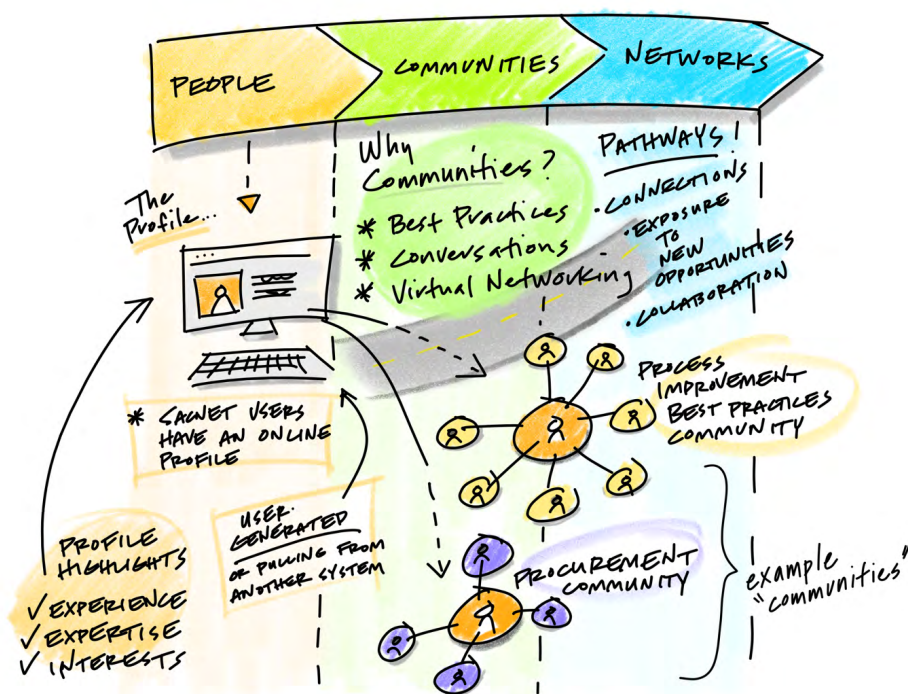 PEOPLE
COMMUNITIES
NETWORKS
The
Profile...
Why
Communities?
* Best Practices
* Conversations
* Virtual Networking
PATHWAYS!
• CONNECTIONS
• EXPOSURE
TO
NEW
OPPORTUNITIES
• COLLABORATION
* SACNET USERS
HAVE AN ONLINE
PROFILE
PROCESS
IMPROVEMENT
BEST PRACTICES
COMMUNITY
USER-
GENERATED
OR PULLING FROM
ANOTHER SYSTEM
PROFILE
HIGHLIGHTS
✓ EXPERIENCE
✓ EXPERTISE
✓ INTERESTS
PROCUREMENT
COMMUNITY
example
"communities"